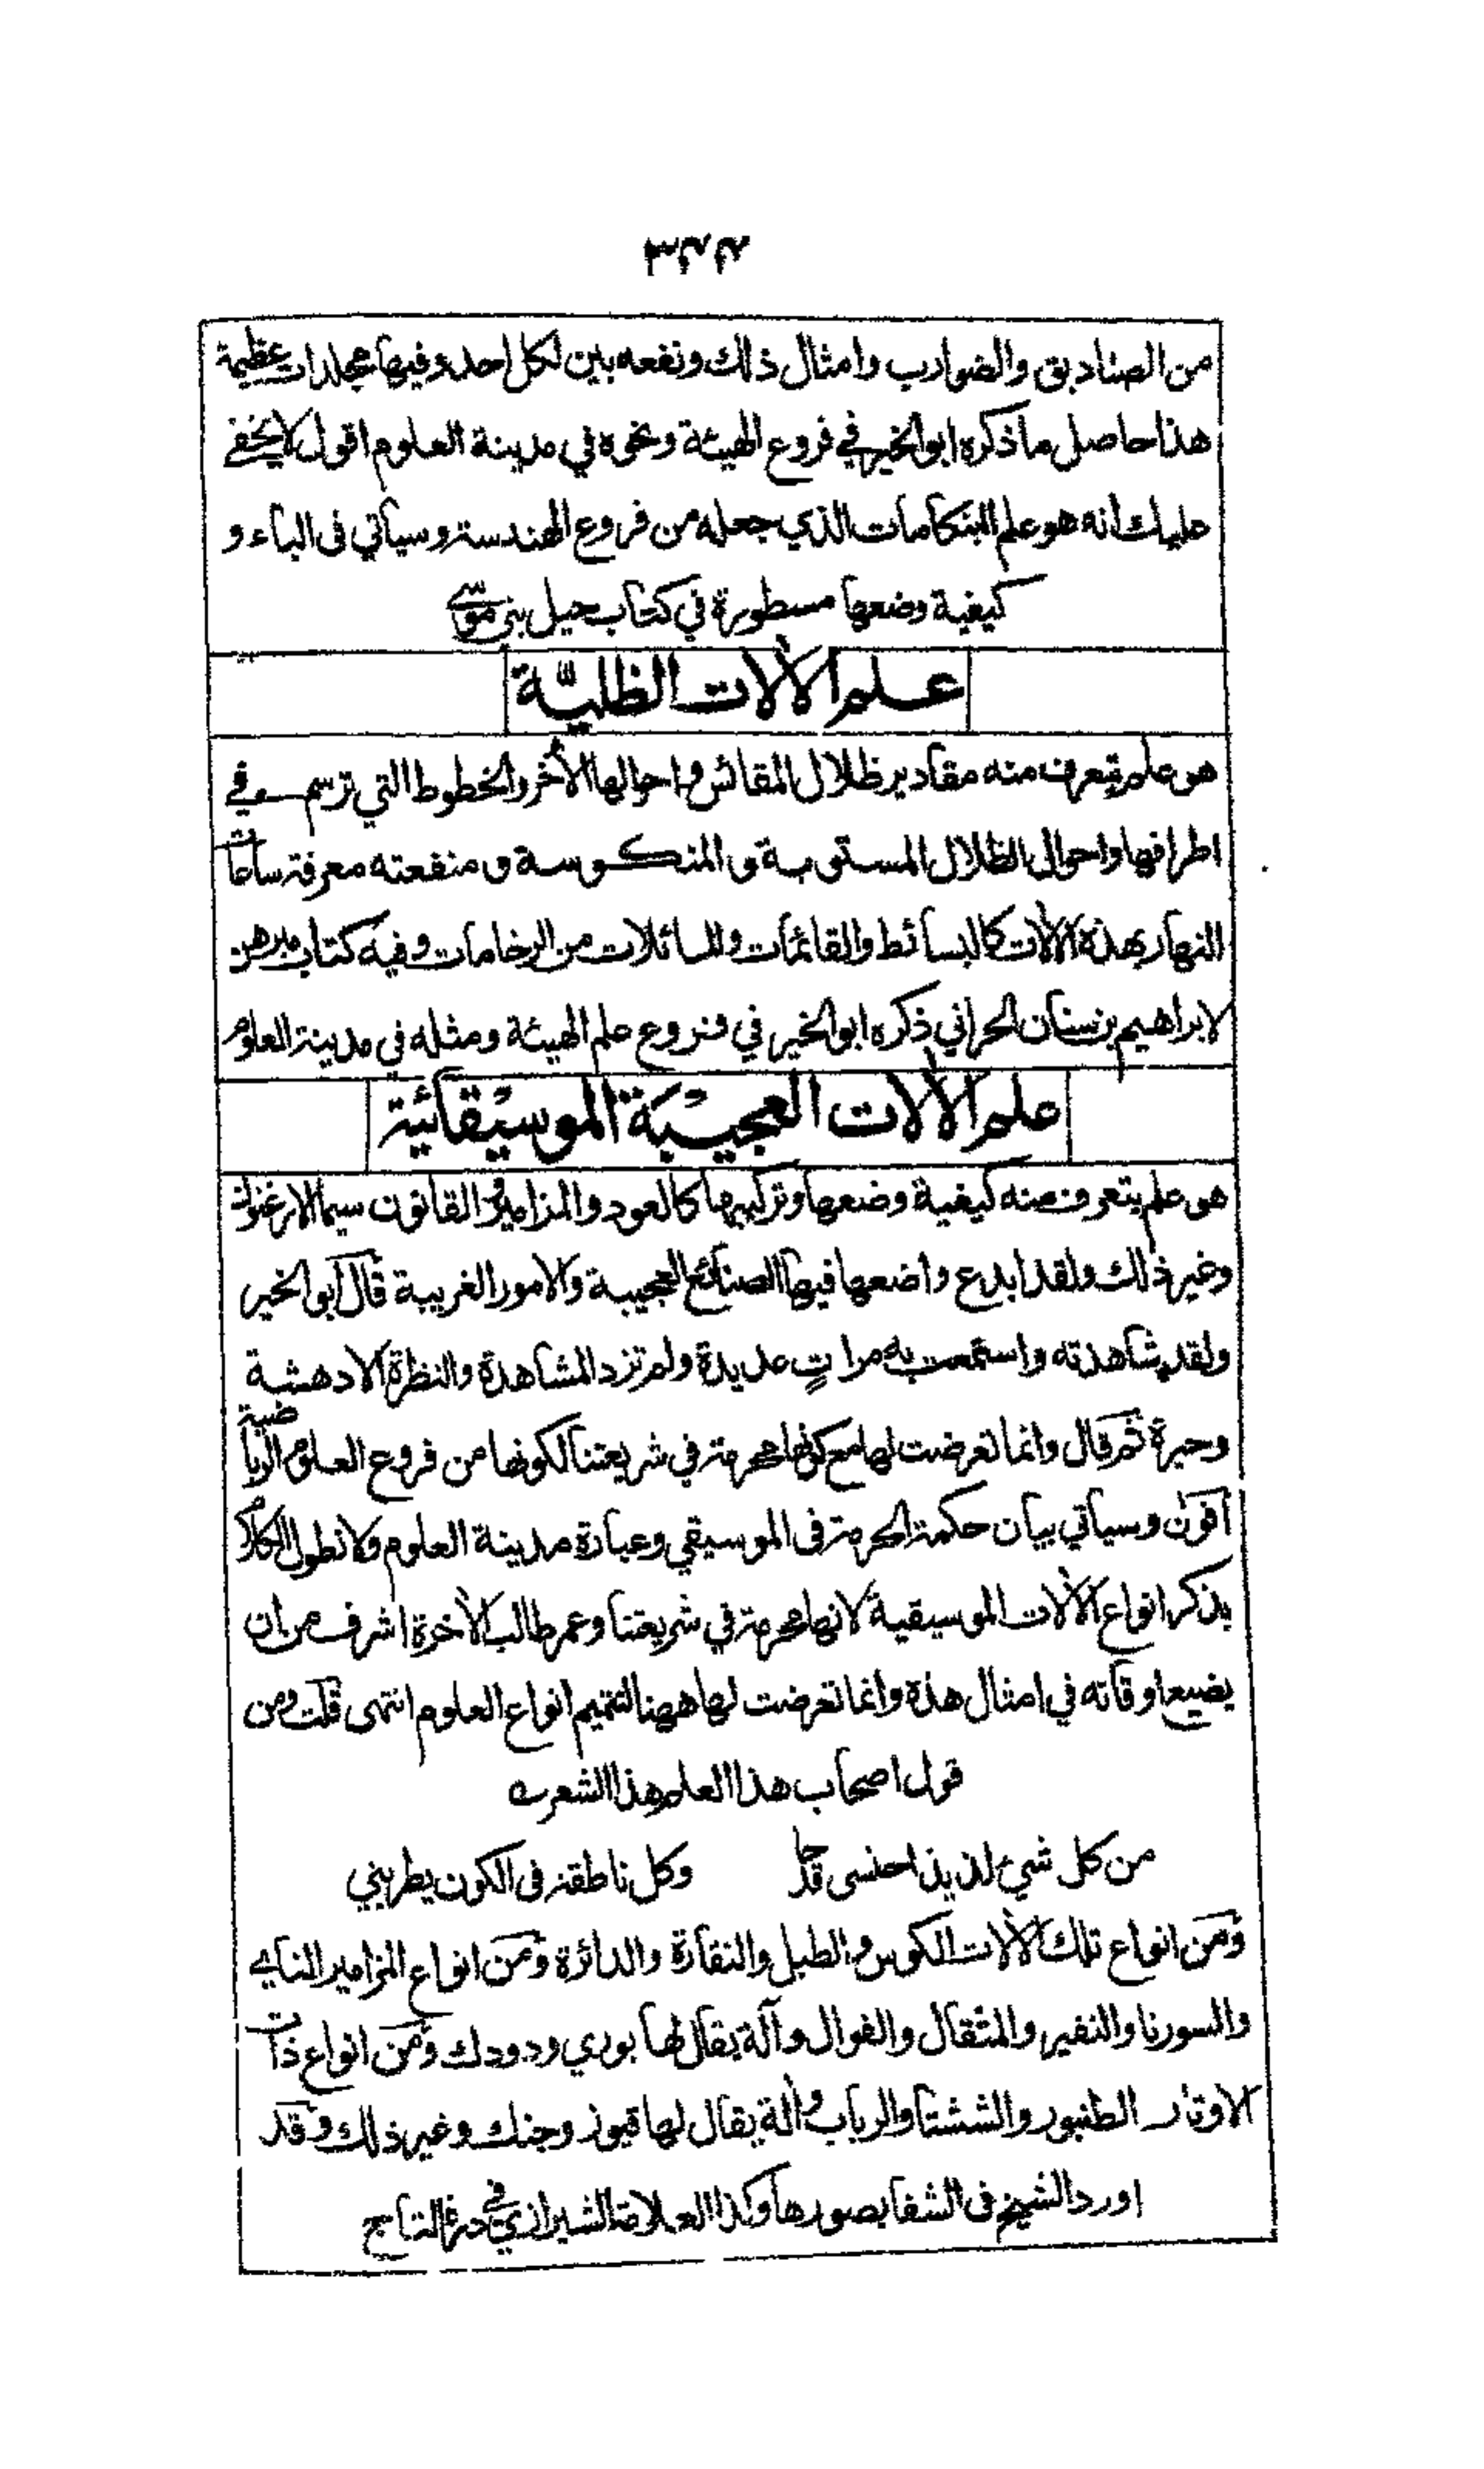 ٣٢٣
من الصناديق والضوارب وامثال ذلك ونفعه بين لكل احد وفيها مجلدات عظيمة
هذا حاصل ما ذكره ابو الخير في فروع الهيئة ونحوه في مدينة العلوم اقول لا يخفى
عليك انه هو علم البنكامات الذي جعله من فروع الهندسة وسيأتي في الباء و
كيفية وضعها مسطورة في كتاب حيل بنى موسى
علم الآلات الظلية
هو علم يتعرف منه مقادير ظلال المقائس واحوالها الأخر والخطوط التي ترسم في
اطرافها واحوال الظلال المستوية والمنكوسة ومنفعته معرفة ساعات
النهار بهذه الآلات كالبسائط والقائمات والمائلات من الرخامات وفيه كتاب مبرهن
لابراهيم بن سنان الحراني ذكره ابو الخير في فروع علم الهيئة ومثله في مدينة العلوم
علم الآلات العجيبة الموسيقائية
هو علم يتعرف منه كيفية وضعها وتركيبها كالعود والمزامير والقانون سيما الارغنون
وغير ذلك ولقد ابدع واضعها فيها الصنائع العجيبة والامور الغريبة قال ابو الخير
ولقد شاهدته واستمعت به مراتٍ عديدة ولم تزد المشاهدة والنظرة الا دهشة
وحيرة ثم قال وانما تعرضت لها مع كونها محرمة في شريعتنا لكونها من فروع العلوم الرياضية
اقول وسيأتي بيان حكمة الحرمة في الموسيقي وعبارة مدينة العلوم ولا نطول الكلام
بذكر انواع الآلات الموسيقية لانها محرمة في شريعتنا وعمر طالب الآخرة اشرف من ان
يضيع اوقاته في امثال هذه وانما تعرضت لها ههنا لتتميم انواع العلوم انتهى قلت ومن
قول اصحاب هذا العلم هذا الشعر
من كل شيء لذيذ احتسى قدحا وكل ناطقة في الكون يطربني
ومن انواع تلك الآلات الكوس والطبل والنقارة والدائرة ومن انواع المزامير الناي
والسورنا والنفير والمثقال والفوال وآلة يقال لها بوري ودودك ومن انواع ذات
الاوتار الطنبور والششتا والرباب وآلة يقال لها قپوز وجنك وغير ذلك وقد
اورد الشيخ في الشفا بصورها وكذا العلامة الشيرازي في درة التاج